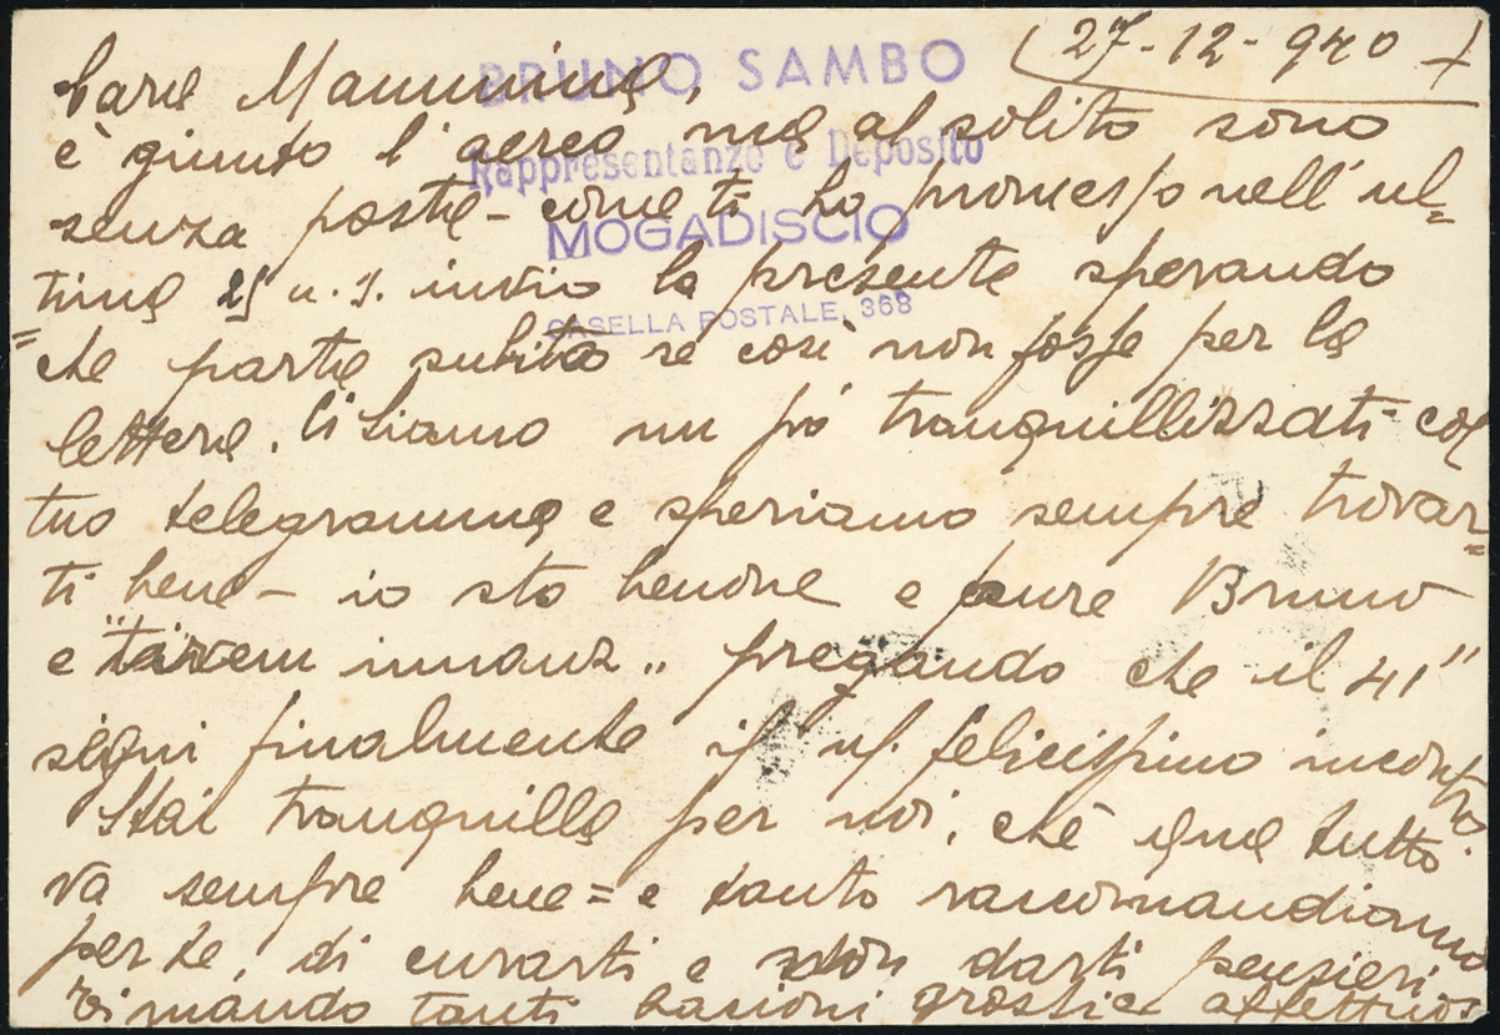 (27-12-940
Cara Mammina,
BRUNO SAMBO
è giunto l'aereo ma al solito sono
Rappresentanze e Deposito
senza posta - come ti ho promesso nell'ul=
MOGADISCIO
tima 25 u.s. invio la presente sperando
CASELLA POSTALE, 368
=che parta subito se così non fosse per la
lettera. Ci siamo un pò tranquillizzati col
tuo telegramma e speriamo sempre trovar=
ti bene - io sto benone e pure Bruno
e "tirem innanz" pregando che il 41"
segni finalmente il ns. felicissimo incontro.
Stai tranquilla per noi, chè qua tutto
va sempre bene = e tanto raccomandiamo
per te, di curarti e non darti pensieri
Ti mando tanti bacioni grossi e affettuosi